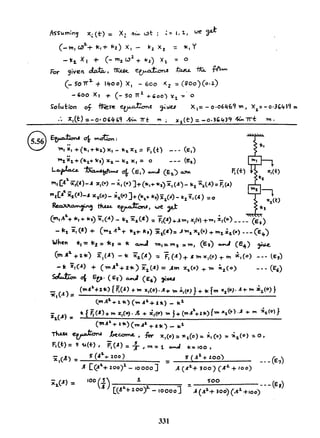 Assuming x_i(t) = X_i sin ωt ; i = 1, 2, we get
(-m_1 ω^2 + k_1 + k_2) X_1 - k_2 X_2 = k_1 Y
-k_2 X_1 + (-m_2 ω^2 + k_2) X_2 = 0
For given data, these equations take the form
(-50 π^2 + 1400) X_1 - 600 X_2 = (800)(0.2)
-600 X_1 + (-50 π^2 + 600) X_2 = 0
Solution of these equations gives X_1 = -0.06469 m, X_2 = -0.36439 m
∴ x_1(t) = -0.06469 sin πt m ; x_2(t) = -0.36439 sin πt m.
5.56 Equations of motion:
m_1 ẍ_1 + (k_1+k_2) x_1 - k_2 x_2 = F_1(t) --- (E_1)
m_2 ẍ_2 + (k_2+k_3) x_2 - k_2 x_1 = 0 --- (E_2)
Laplace transforms of (E_1) and (E_2) are
m_1[s^2 x̄_1(s) - s x_1(0) - ẋ_1(0)] + (k_1+k_2) x̄_1(s) - k_2 x̄_2(s) = F̄_1(s)
m_2[s^2 x̄_2(s) - s x_2(0) - ẋ_2(0)] + (k_2+k_3) x̄_2(s) - k_2 x̄_1(s) = 0
Rearranging these equations, we get
(m_1 s^2 + k_1 + k_2) x̄_1(s) - k_2 x̄_2(s) = F̄_1(s) + s m_1 x_1(0) + m_1 ẋ_1(0) --- (E_3)
-k_2 x̄_1(s) + (m_2 s^2 + k_2 + k_3) x̄_2(s) = s m_2 x_2(0) + m_2 ẋ_2(0) --- (E_4)
When k_1 = k_2 = k_3 = k and m_1 = m_2 = m, (E_3) and (E_4) give
(m s^2 + 2k) x̄_1(s) - k x̄_2(s) = F̄_1(s) + s m x_1(0) + m ẋ_1(0) --- (E_5)
-k x̄_1(s) + (m s^2 + 2k) x̄_2(s) = s m x_2(0) + m ẋ_2(0) --- (E_6)
Solution of Eqs. (E_5) and (E_6) gives
x̄_1(s) = (m s^2 + 2k) {F̄_1(s) + m x_1(0) · s + m ẋ_1(0)} + k {m x_2(0) · s + m ẋ_2(0)} / (m s^2 + 2k)(m s^2 + 2k) - k^2
x̄_2(s) = k {F̄_1(s) + m x_1(0) · s + ẋ_1(0) m} + (m s^2 + 2k) {m x_2(0) · s + m ẋ_2(0)} / (m s^2 + 2k)(m s^2 + 2k) - k^2
These equations become, for x_1(0) = x_2(0) = ẋ_1(0) = ẋ_2(0) = 0,
F_1(t) = 5 u(t), F̄_1(s) = 5/s, m = 1 and k = 100,
x̄_1(s) = 5(s^2 + 200) / s[(s^2 + 200)^2 - 10000] = 5(s^2 + 200) / s(s^2 + 300)(s^2 + 100) --- (E_7)
x̄_2(s) = 100 (5/s) 1 / [(s^2 + 200)^2 - 10000] = 500 / s(s^2 + 300)(s^2 + 100) --- (E_8)
k_1
m_1
F_1(t)
x_1(t)
k_2
m_2
x_2(t)
k_3
331